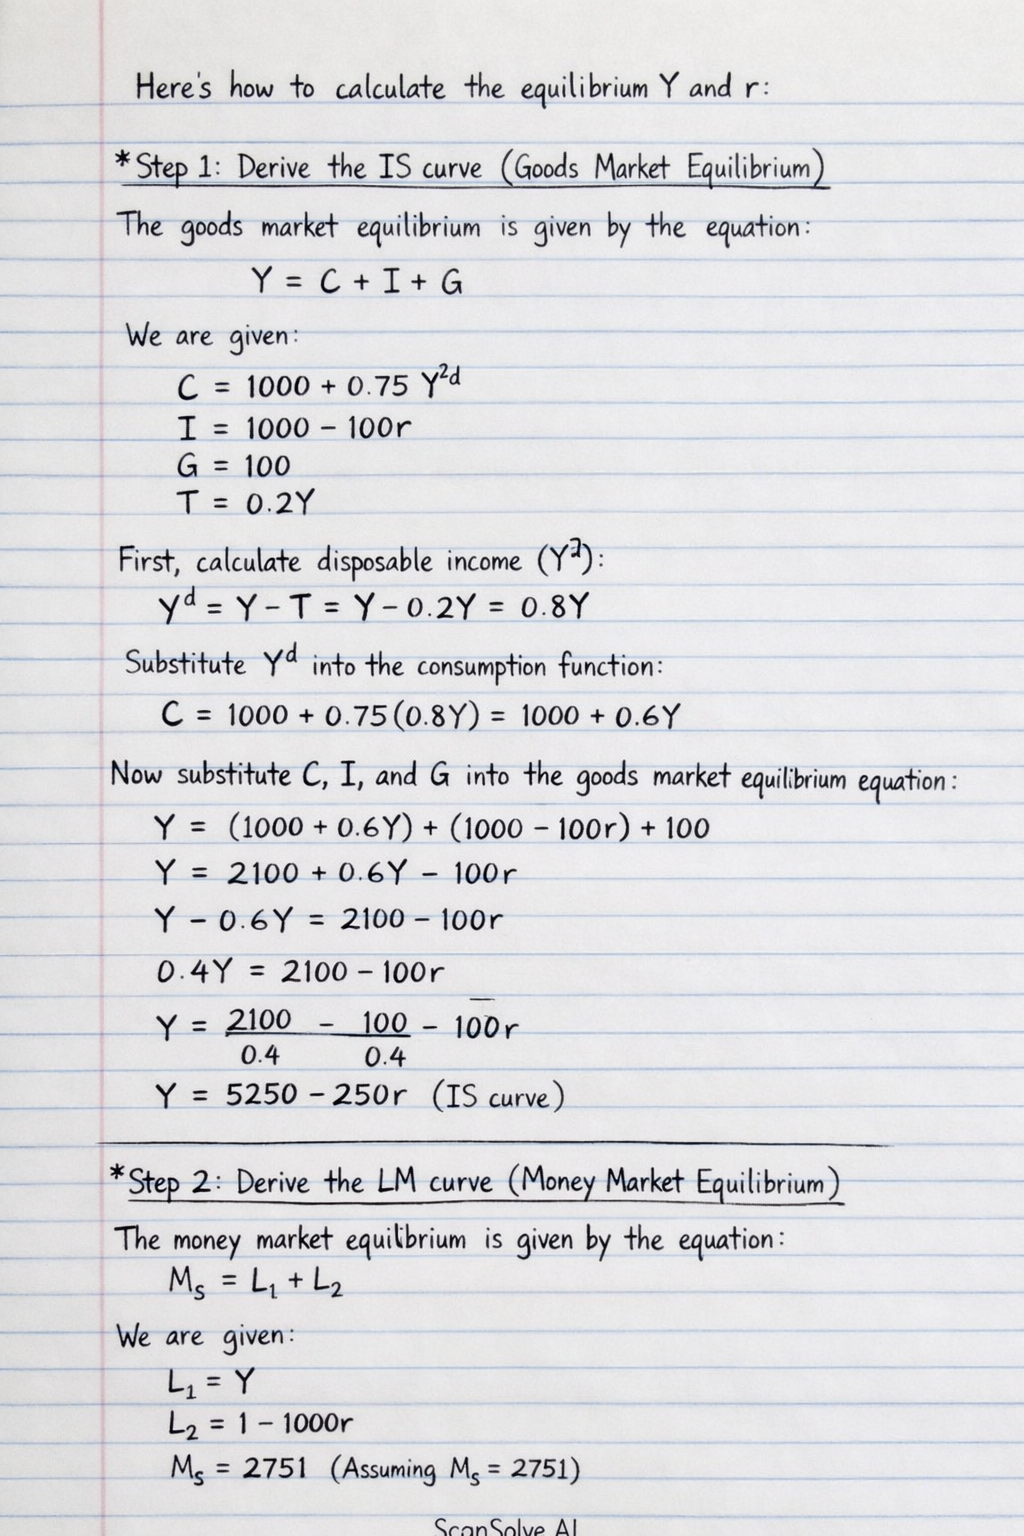 Here's how to calculate the equilibrium Y and r:
*Step 1: Derive the IS curve (Goods Market Equilibrium)
The goods market equilibrium is given by the equation:
Y = C + I + G
We are given:
C = 1000 + 0.75 Y²ᵈ
I = 1000 − 100r
G = 100
T = 0.2Y
First, calculate disposable income (Y²):
Yᵈ = Y − T = Y − 0.2Y = 0.8Y
Substitute Yᵈ into the consumption function:
C = 1000 + 0.75(0.8Y) = 1000 + 0.6Y
Now substitute C, I, and G into the goods market equilibrium equation:
Y = (1000 + 0.6Y) + (1000 − 100r) + 100
Y = 2100 + 0.6Y − 100r
Y − 0.6Y = 2100 − 100r
0.4Y = 2100 − 100r
Y = 2100 − 100 − 100r
0.4 0.4
Y = 5250 − 250r (IS curve)
*Step 2: Derive the LM curve (Money Market Equilibrium)
The money market equilibrium is given by the equation:
Mₛ = L₁ + L₂
We are given:
L₁ = Y
L₂ = 1 − 1000r
Mₛ = 2751 (Assuming Mₛ = 2751)
ScanSolve AI